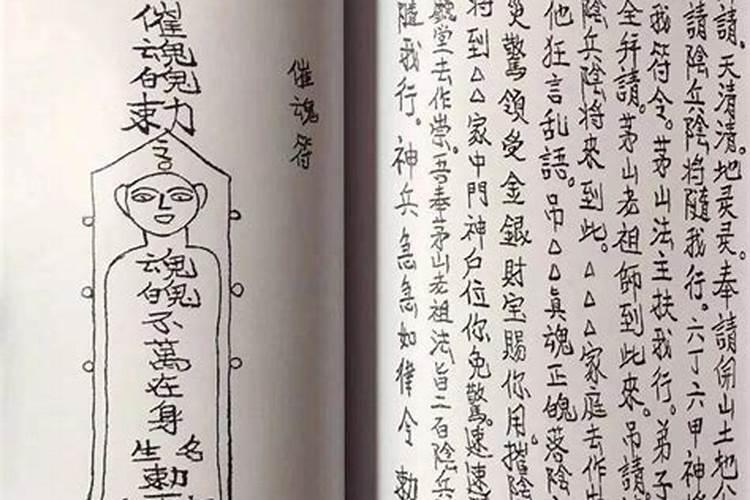 請。天清清。地灵灵。奉請開山土地
請陰兵陰將隨我行。六丁六甲神
我符令。茅山法主扶我行。弟子
全拜請。茅山老祖師到此來。吊請
陰兵陰將來到此。△△△家庭去作
他狂言乱語。吊△△真魂正魄落陰
災驚領受金銀財宝賜你用。摧陰
将到△△家中門神户位你免驚。速速
堂去作祟。吾奉茅山老祖法旨二百陰兵
隨我行。神兵急急如律令 勅
催魂符
催
魂
魄
勅
魂
魄
不
萬
在
身
生 名
勅